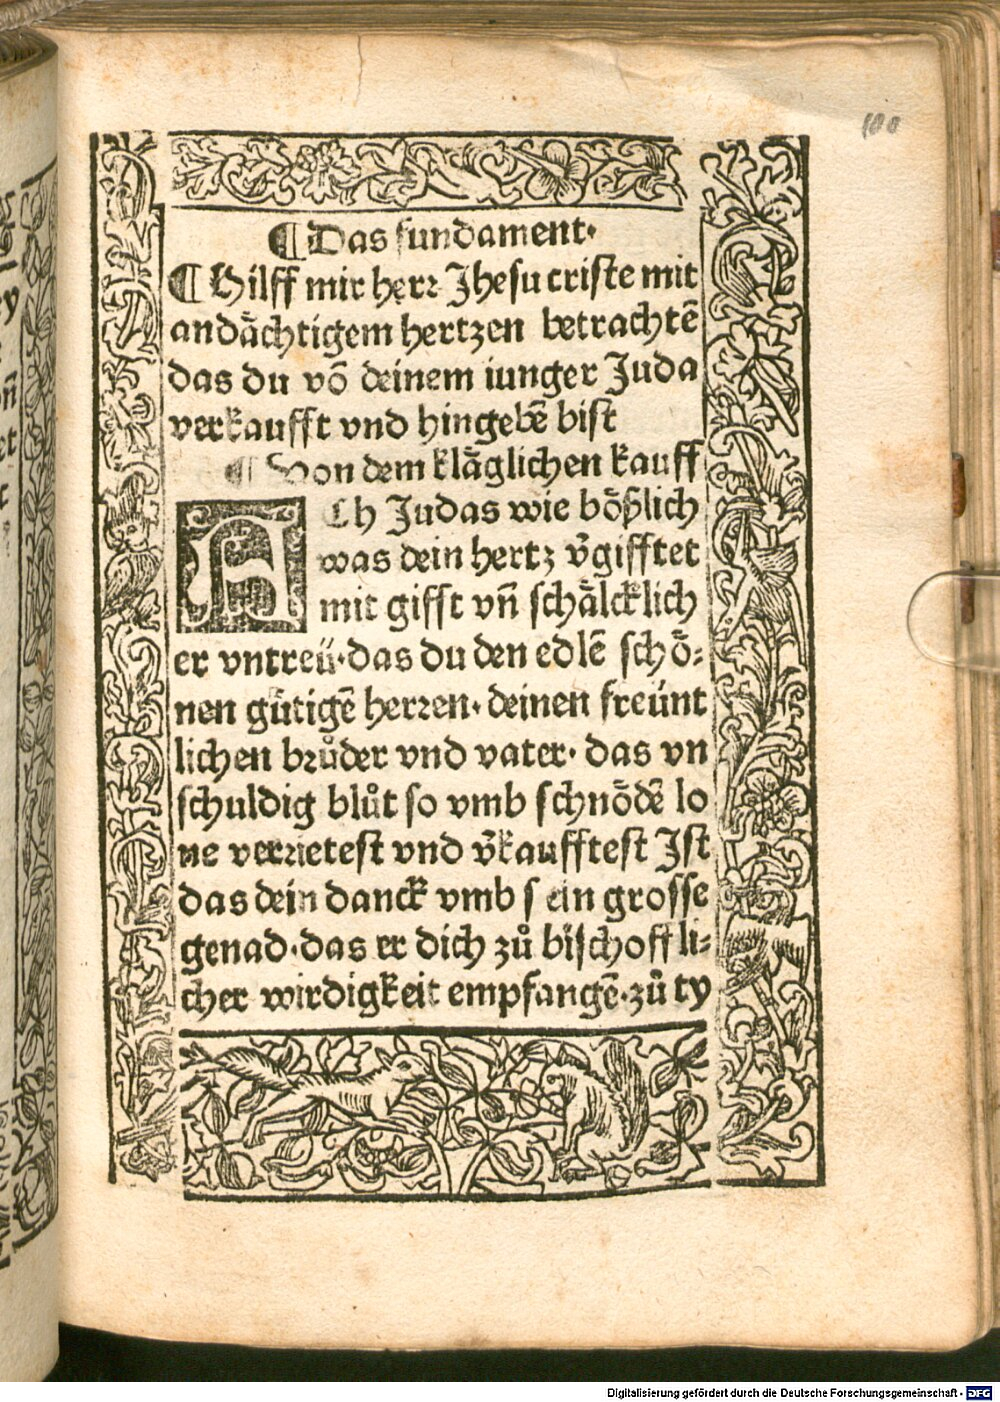 100
¶ Das fundament·
¶ Hilff mir herꝛ Jhesu criste mit
andächtigem hertzen betrachtē
das du võ deinem iunger Juda
verkaufft vnd hingebē bist
¶ Von dem kläglichen kauff
ACh Judas wie bößlich
was dein hertz v̄gifftet
mit gifft vn̄ schälcklich
er vntreü·das du den edlē schö⸗
nen gütigē herꝛen· deinen freünt
lichen brůder vnd vater· das vn
schuldig blůt so vmb schnödē lo
ne verꝛietest vnd v̄kaufftest Jst
das dein danck vmb sein grosse
genad·das er dich zů bischoff li⸗
cher wirdigkeit empfangē·zů ty
Digitalisierung gefördert durch die Deutsche Forschungsgemeinschaft · DFG